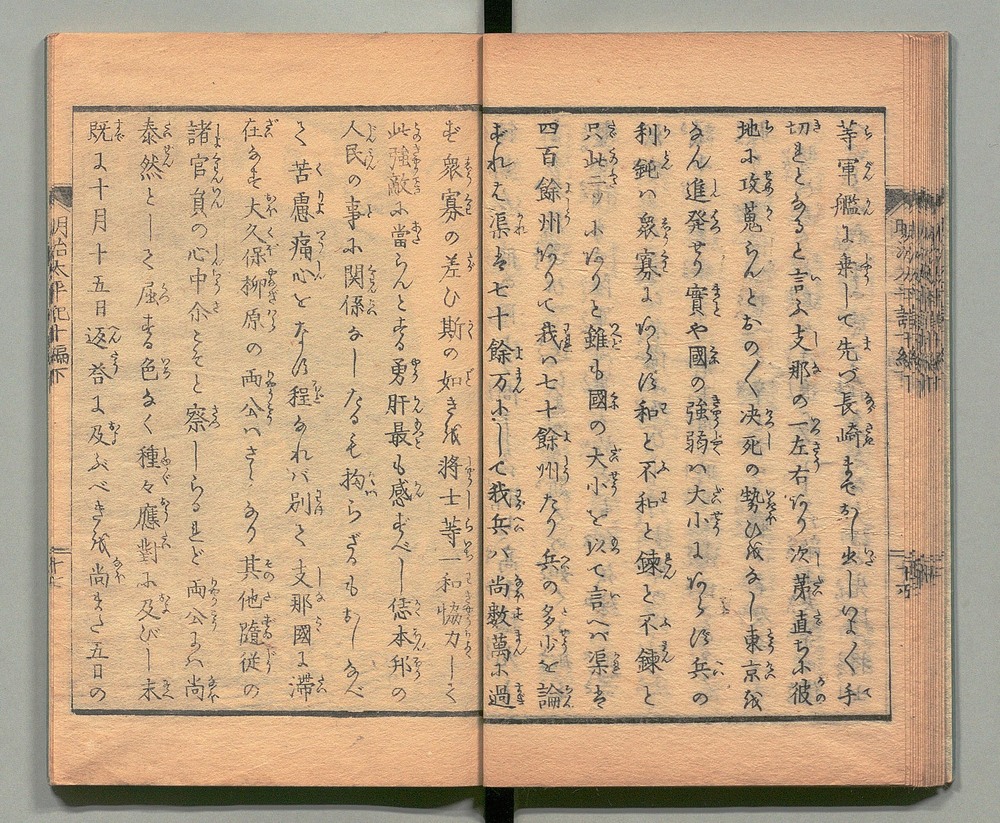 等軍艦に乗して先づ長崎まで出しいよ〱手
切れとなると言ふ支那の一左右あり次第直ちに彼
地に攻蒐らんとおの〱决死の勢ひをなし東京を
なん進発せり實や國の強弱ハ大小にあらず兵の
利鈍ハ衆寡にあらず和と不和と錬と不錬と
只此二ツにありと雖も國の大小を以て言へバ渠は
四百餘州ありて我ハ七十餘州たり兵の多少を論
ずれは渠は七十餘万にして我兵ハ尚數萬に過
ず衆寡の差ひ斯の如きを将士等一和協力して
此強敵に當らんとする勇肝最も感ずべし偖本邦の
人民の事に関係なしたるも拘らざるもおしなべ
て苦慮痛心となす程なれバ別て支那國に滞
在なす大久保柳原の両公ハさらなり其他隨従の
諸官員の心中余こそと察しらるれど両公にハ尚
泰然として屈する色なく種々應對に及びし末
既に十月十五日返荅に及ぶべきを尚また五日の
明治太平記十編下